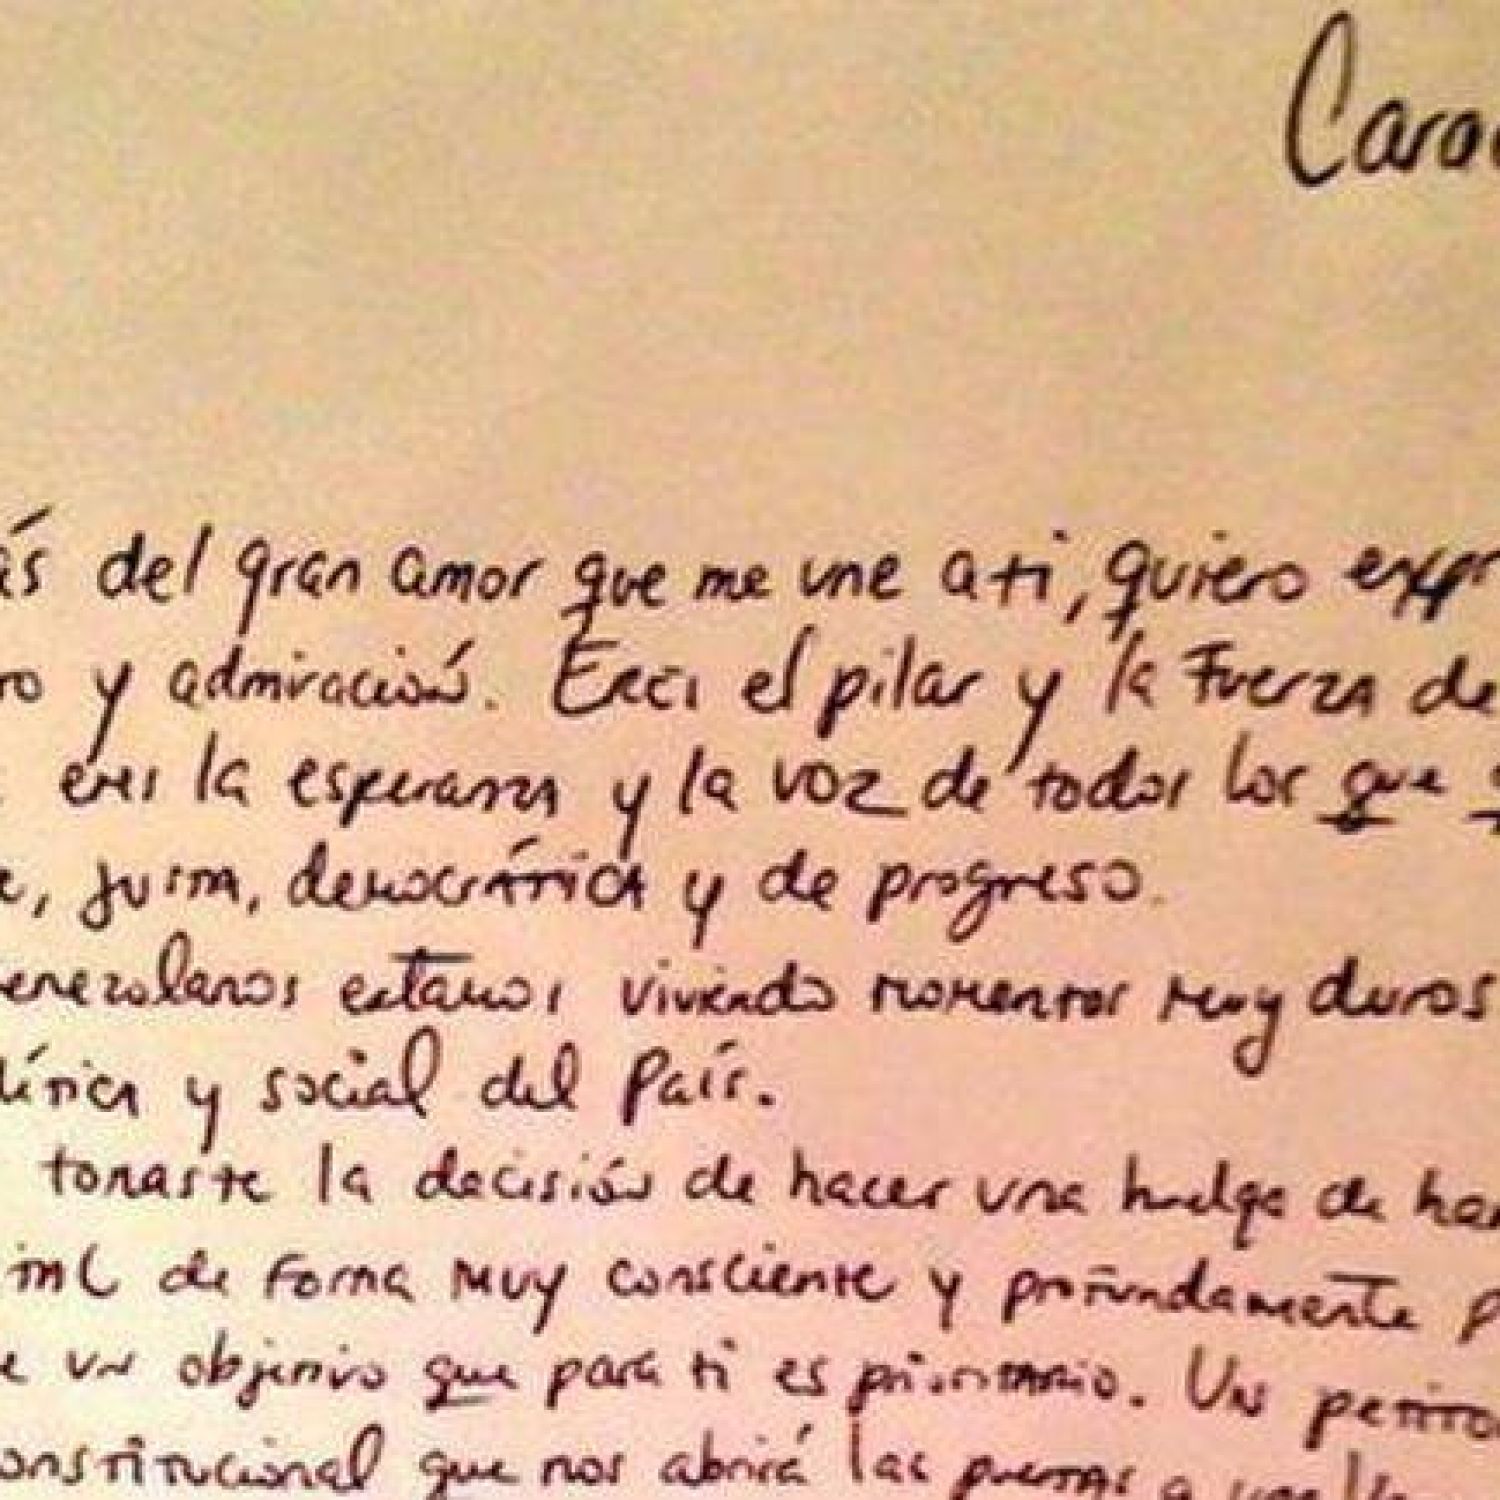 Carac
ás del gran amor que me une a ti, quiero expr
ro y admiración. Eres el pilar y la Fuerza de
eres la esperanza y la voz de todos los que
e, justa, democrática y de progreso.
venezolanos estamos viviendo momentos muy duros
lítica y social del País.
tomaste la decisión de hacer una huelga de ham
abril de Forma muy consciente y profundamente p
e un objetivo que para ti es prioritario. Un petito
onstitucional que nos abrirá las puertas a una